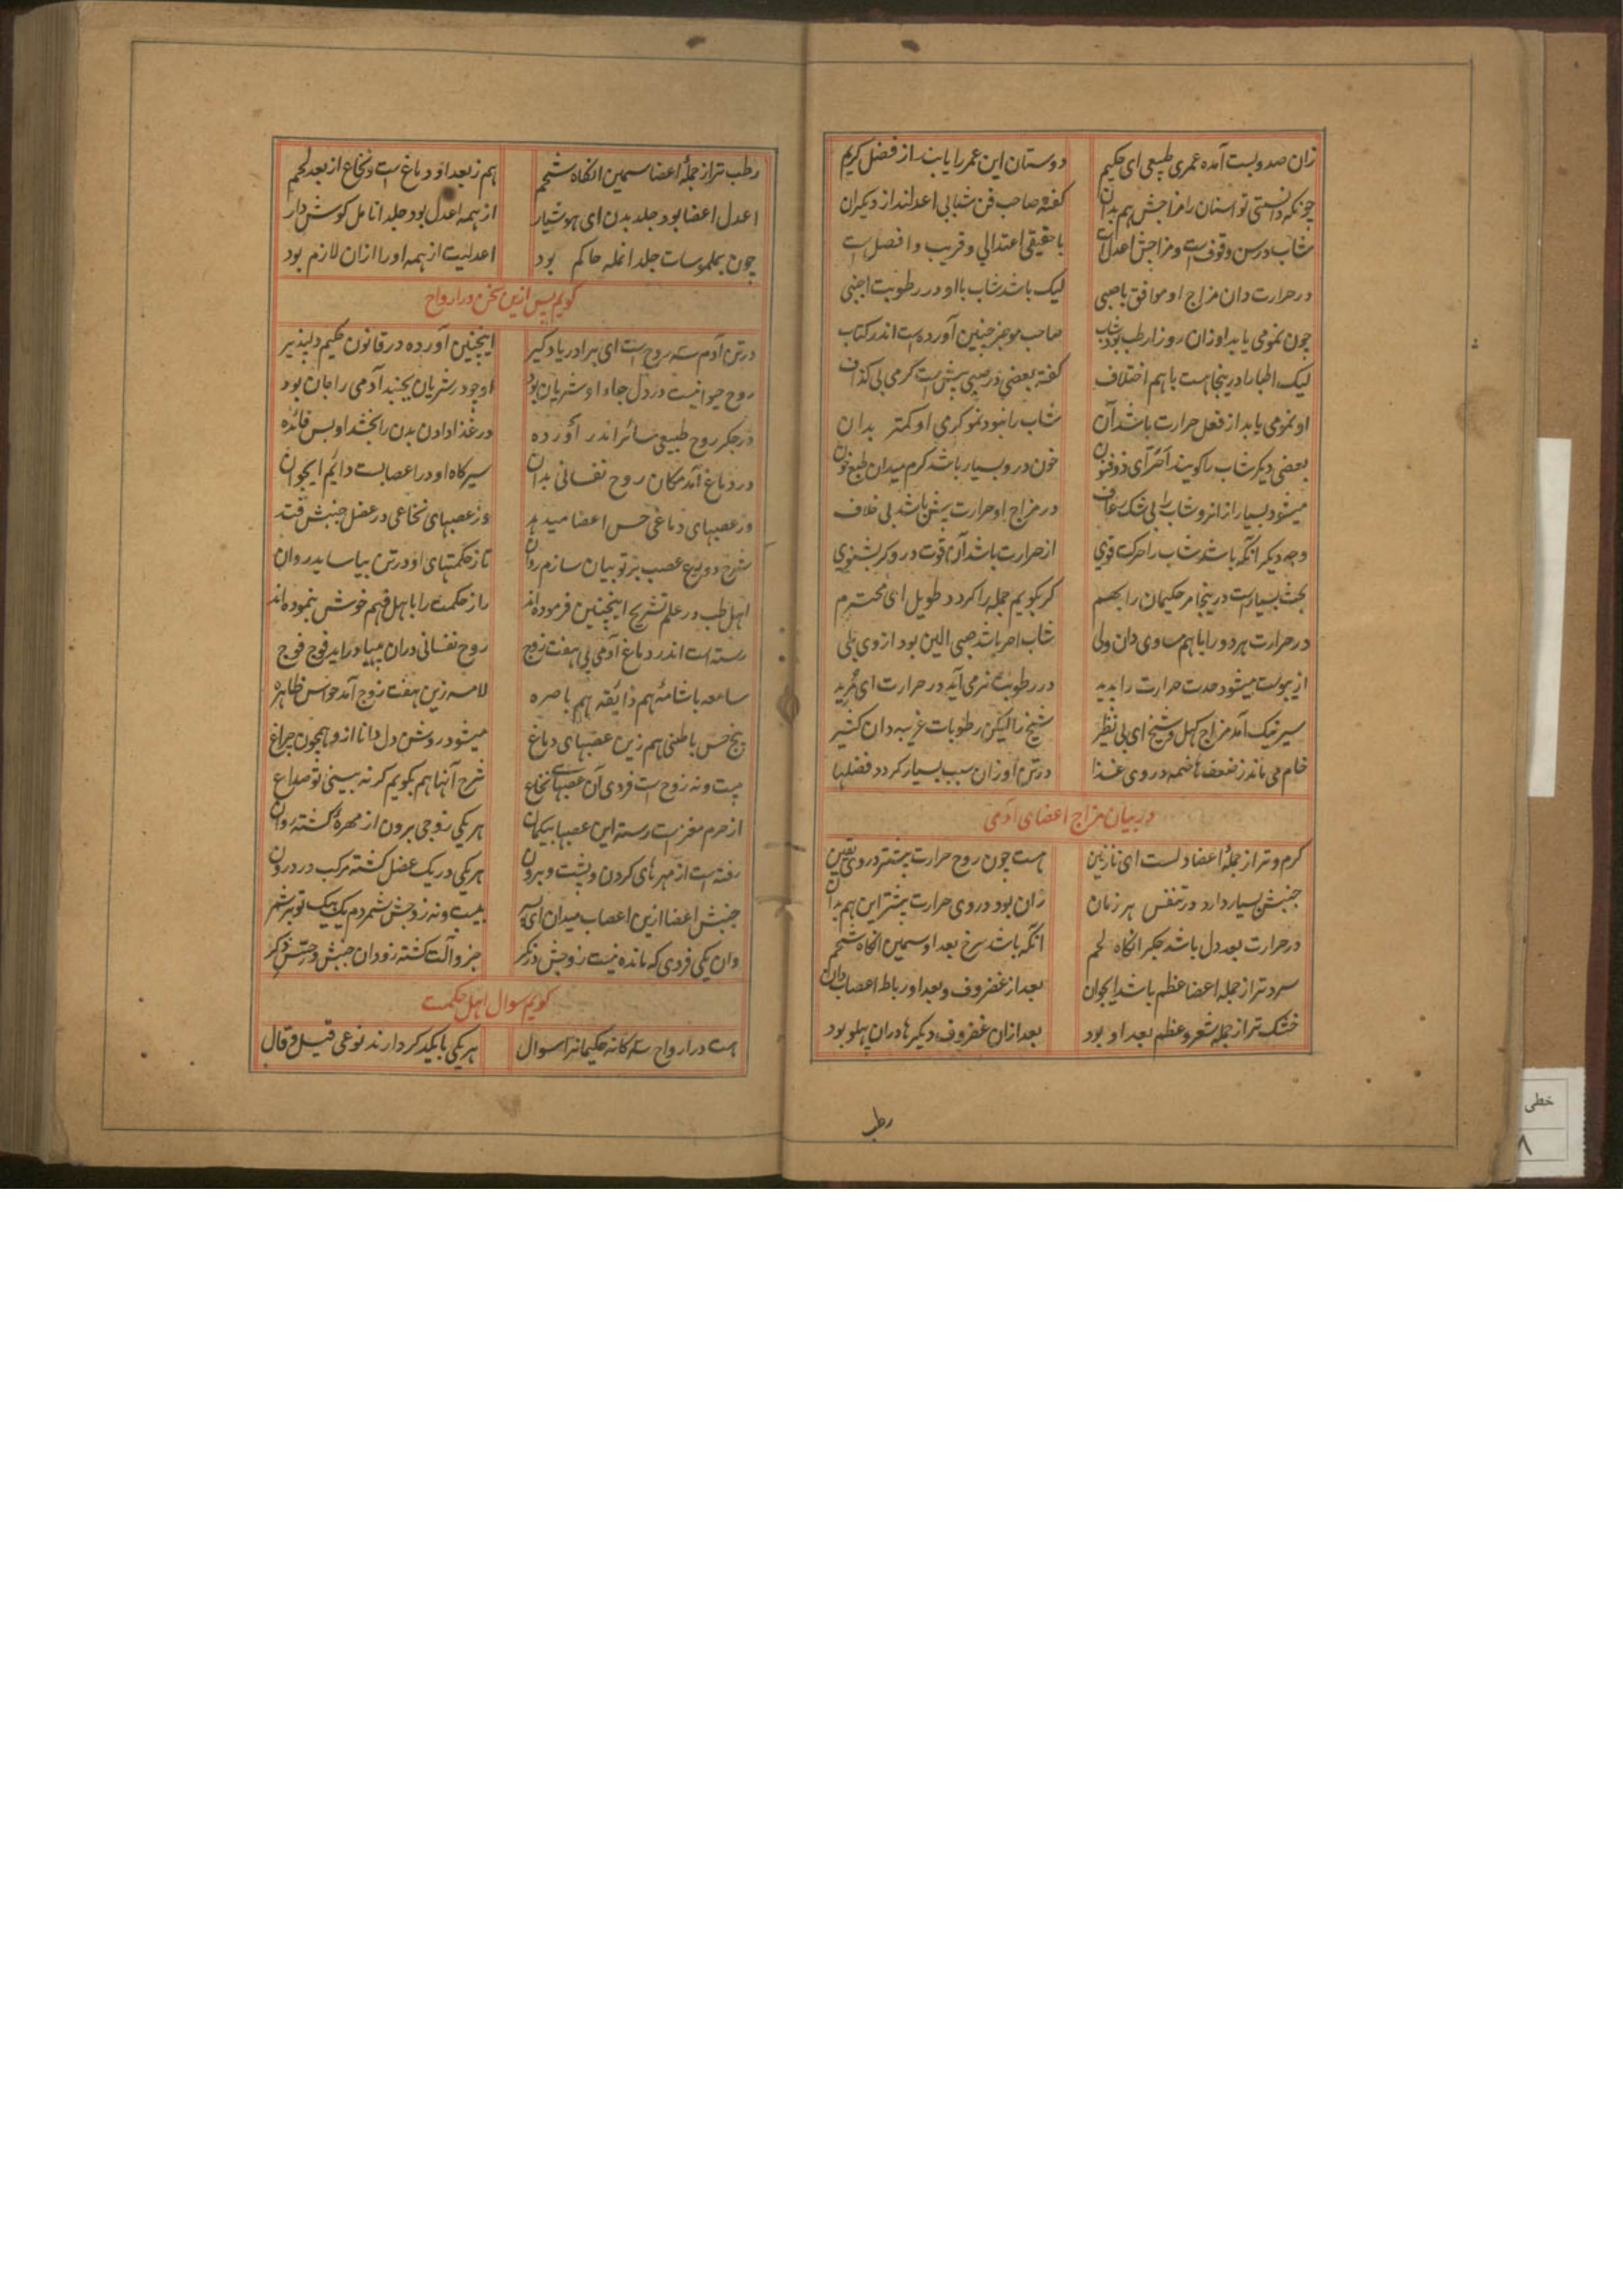 زان صد و بست آمده عمری طبیعی ای حکیم دوستان این عمر را یابند از فضل کریم
چونکه دانستی تو اسنان را مزاجش هم بدان گفته صاحب فن شبابی اعدلند از دیگران
شاب در سن وقوفست و مزاجش اعدلست با حقیقی اعتدالی و قریب و افضل است
در حرارت دان مزاج او موافق با صبی لیک باشد شاب با او در رطوبت اجنبی
چون نمو می یابد او زان رو ز ارطب بود شاب صاحب موجز چنین آورده است اندر کتاب
لیک اطبا را درینجا هست با هم اختلاف گفته بعضی در صبی بیش است گرمی بی گذاف
او نمو می یابد از فعل حرارت باشد آن شاب را نبود نمو گرمی او کمتر بدان
بعضی دیگر شاب را گویند آخر ای ذوفنون خون درو بسیار باشد گرم میدان طبع خون
میشود بسیار از انرو شاب را بی شک رعاف در مزاج او حرارت بیش باشد بی خلاف
وجه دیگر آنکه باشد شاب را حرکت قوی از حرارت باشد آن قوت درو گر بشنوی
بحث بسیار است درینجا مر حکیمان را بهم گر بگویم جمله را گردد طویل ای محترم
در حرارت هر دو را با هم مساوی دان ولی شاب احر باشد صبی الین بود از وی بلی
از یبوست میشود حدت حرارت را بدید در رطوبت نرمی آید در حرارت ای فرید
سیر نیک آمد مزاج کهل و شیخ ای بی نظیر شیخ را لیکن رطوبات غریبه دان کثیر
خام می ماند ز ضعف هاضمه در وی غذا در تن او زان سبب بسیار گردد فضلها
در بیان مزاج اعضای آدمی
گرم و تر از جملهٔ اعضا دلست ای نازنین هست چون روح حرارت بیشتر در وی یقین
جنبش بسیار دارد در تنفس هر زمان زان بود در وی حرارت بیشتر این هم بدان
در حرارت بعد دل باشد جگر انگاه لحم آنکه باشد سرخ بعد او سمین انگاه شحم
سردتر از جمله اعضا عظم باشد ایجوان بعد از غضروف و بعد او رباط اعصاب دان
خشک تر از جمله شعر و عظم بعد او بود بعد ازان غضروف دیگرها دران پهلو بود
رطب
رطب تر از جملهٔ اعضا سمین انگاه شحم هم ز بعد او دماغ است و نخاع از بعد لحم
اعدل اعضا بود جلد بدن ای هوشیار از همه اعدل بود جلد انامل گوش دار
چون بملموسات جلد انمله حاکم بود اعدلیت از همه او را ازان لازم بود
گویم پس ازین سخن در ارواح
در تن آدم سه روح است ای برادر یاد گیر اینچنین آورده در قانون حکیم دلپذیر
روح حیوانیست در دل جاء او شریان بود او چو در شریان بجنبد آدمی را جان بود
در جگر روح طبیعی سائر اندر آورده در غذا دادن بدن را بخشد او بس فائده
در دماغ آمد مکان روح نفسانی بدان سیرگاه او در اعصابست دایم ایجوان
وز عصبهای دماغی حس اعضا میدهد وز عصبهای نخاعی در عضل جنبش فتد
شرح دو نوع عصب بر تو بیان سازم روان تا ز حکمتهای او در تن بیاساید روان
اهل طب در علم تشریح اینچنین فرموده اند راز حکمت را با اهل فهم خوش بنموده اند
رسته است اندر دماغ آدمی بی هفت زوج روح نفسانی دران میاید فوج فوج
سامعه با شامه هم ذایقه هم باصره لامسه زین هفت زوج آمد حواس ظاهره
پنج حس باطنی هم زین عصبهای دماغ میشود روشن دل دانا ازو همچون چراغ
بیست و نه زوج است فردی آن عصبهای نخاع شرح آنها هم بگویم گر نه بینی تو صداع
از حرم مغزست رسته این عصبها بیگمان هر یکی زوجی برون از مهرهٔ گشته روان
رفته است از مهرهای گردن و پشت و برون هر یکی در یک عضل گشته مرکب در درون
جنبش اعضا ازین اعصاب میدان ای پسر بیست و نه زوجش شمردم یک بیک تو بر شمر
وان یکی فردی که مانده نیست زوجش در کمر جزو آلت گشته زو دان جنبش و حس ذکر
گویم سوال اهل حکمت
هست در ارواح سه گانه حکیمانرا سوال هر یکی با یکدگر دارند نوعی قیل و قال
خطی
۸